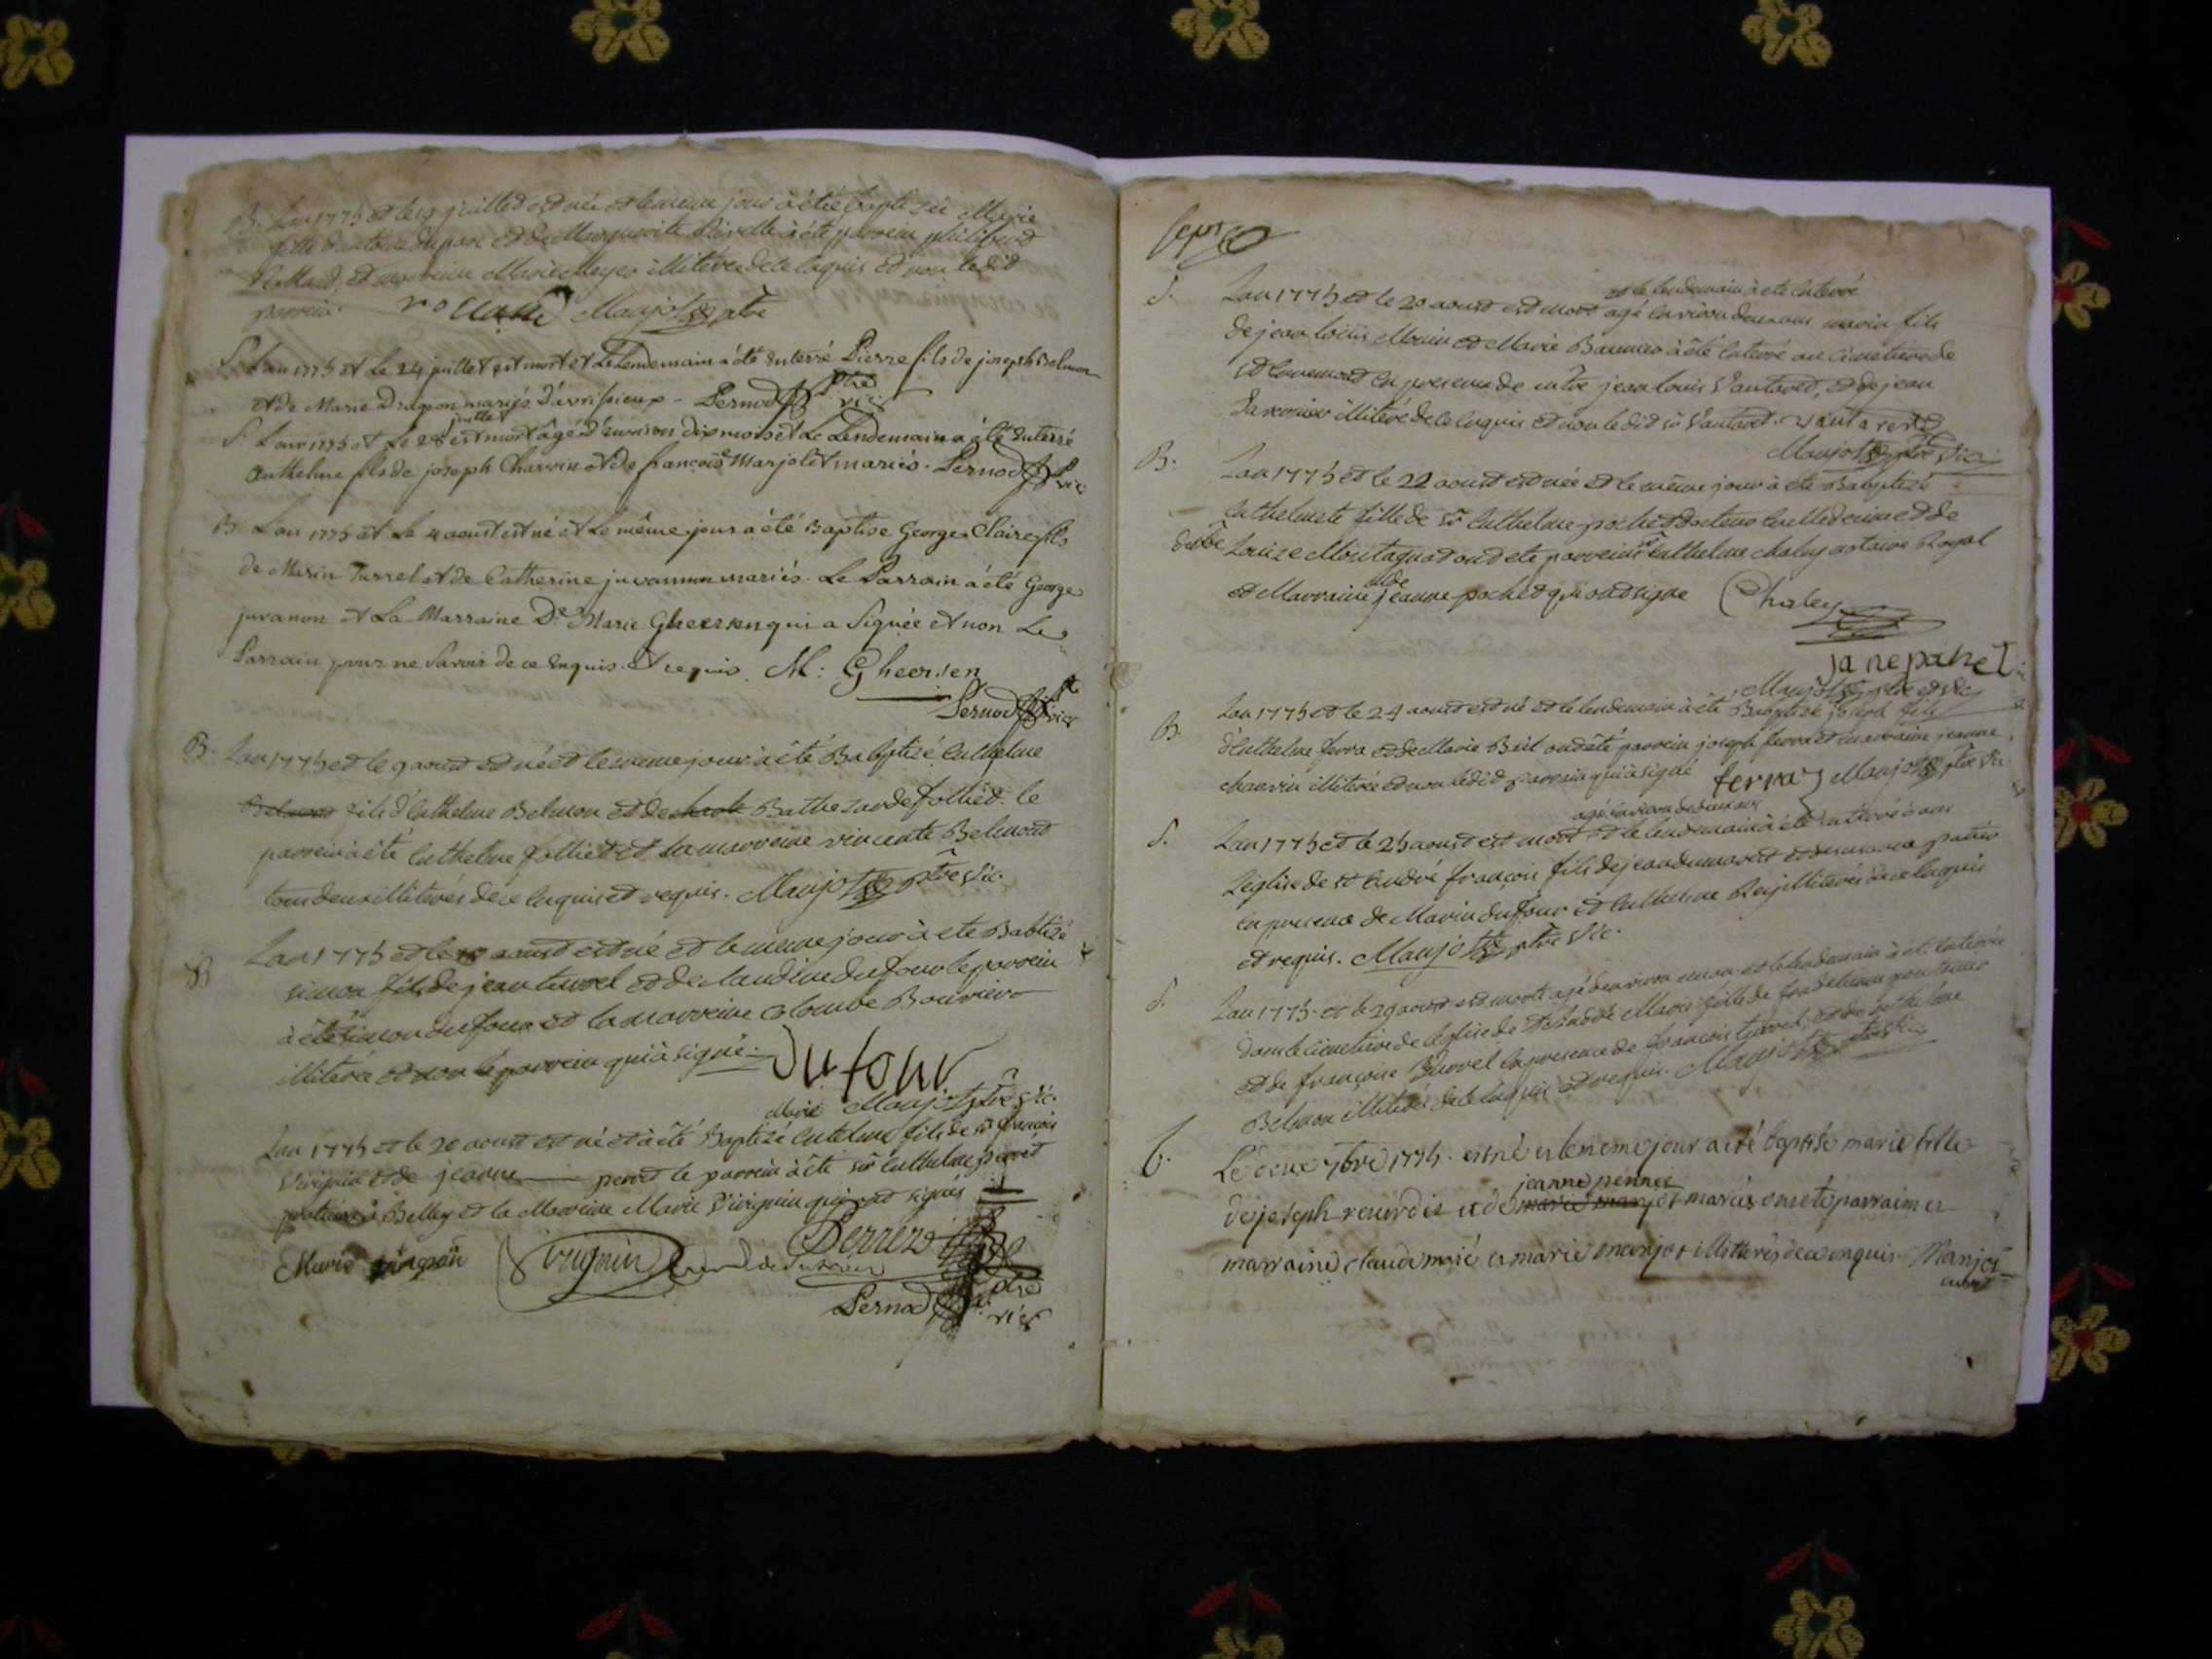 B. L'an 1775 et le 19 juillet est née et le meme jour à été baptizée Marie
fille d'antoine dupare et de Marguerite à été parrein philibert
Rolland, et marreine Marie Meyer illiterée de ce enquis et non ledit
parrein. rolland Maujot ptre
S. L'an 1775 et Le 24 juillet est mort et Le Lendemain a été Enterré Pierre fils de joseph Belmon
et de Marie Dragon mariés D'avrissieux - Pernod ptre vic.
juillet
S. L'an 1775 et Le 28 est mort âgé d'environ dix mois et Le Lendemain a été Enterré
Anthelme fils de joseph Charvin et de françoise Marjolet mariés. Pernod P vic.
B. L'an 1775 et Le 4 aoust est né et Le même jour a été Baptise George Claire fils
de Marin Turrel et de Catherine juvanon mariés. Le Parrain a été George
juvanon et La Marraine De. Marie Gheersen qui a Signée et non Le
Parrain pour ne Savoir de ce Enquis et requis. M: Gheersen
Pernod vic
B. L'an 1775 et le 9 aoust est né et le meme jour à été Babptizé Enthelme
Belmon fils d'Enthelme Belmon et de Bathezarde folliet. le
parrein à été Enthelme folliet et la marreine vincente Belmont
tous deux illiterés de ce Enquis et requis. Maujot ptre vic.
B L'an 1775 et le aoust est né et le meme jour à ete Babtizé
simon fils de jean turrel et de claudine dufour le parrein
à été simon dufour et la marreine Colombe Bouvier
illiterée et non le parrein qui à signé. Dufour
Marie Maujot ptre vic.
L'an 1775 et le 20 aoust est né et à été Baptizé Entelme fils de sr françois
Virignin et de jeanne perret le parrein à été sr Enthelme perret
à Belley et la Marreine Marie Virignin qui ont signés
Marie Virignin Perret
Pernod ptre vic
sept
et le lendemain à ete Enterré
S. L'an 1775 et le 20 aoust est mort agé Environ deux ans marin fils
de jean louis Morin et Marie à été Enterré au cimetiere de
En presence de jean louis Vautaret, et de jean
illiteré de ce Enquis et non ledit sr Vautaret. vautaret
Maujot ptre vic
B. L'an 1775 et le 22 aoust est née et le même jour à été Babptizée
Enthelmete fille de sr Enthelme pochet docteur En Medecine et de
Louize Montagnat ont ete parreins sr Enthelme chaley notaire Royal
et Marraine jeanne pochet qui ont signe Chaley
jane pochet
Maujot ptre et vic
B. L'an 1775 et le 24 aoust est né et le lendemain à été Babptizé joseph fils
d'Enthelme ferra et de Marie Biel ont été parrein joseph ferra et marraine jeanne
charvin illiterée et non ledit parrein qui à signé ferraz Maujot ptre vic
agé Environ de deux ans
S. L'an 1775 et le 25 aoust est mort et le lendemain à été enterré dans
l'église de st andré françois fils de jean dumarest et de
En presence de Marin dufour et Enthelme Rey illiterés de ce Enquis
et requis. Maujot ptre vic.
S. L'an 1775 et le 29 aoust est morte agé d'environ un an et le lendemain à eté Enterrée
dans le cimetiere de l'eglise de st andré Marie fille de
et de françoise Burrel En presence de françois turrel, et de Enthelme
Belmon illiterés de ce Enquis et requis. Maujot ptre vic
b. Le deux 7bre 1775. est né et le meme jour a eté baptisé marie fille
jeanne pennet
de joseph et de marie manjot mariés ont ete parrain et
marraine claude et marie manjot illitterés de ce enquis. Manjot
curé